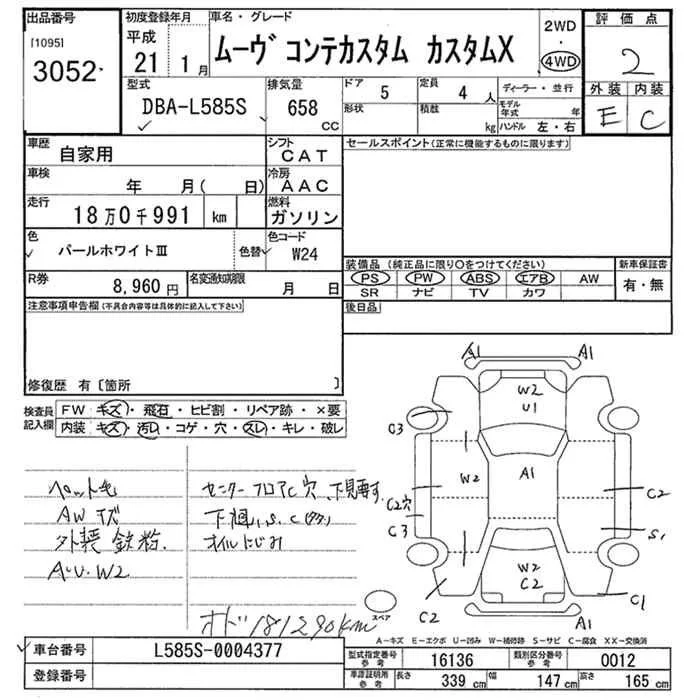 出品番号
[1095]
3052
初度登録年月
平成
21 1月
車名・グレード
ムーヴ コンテカスタム カスタムX
2WD
・
4WD
評価点
2
外装 内装
E C
型式
DBA-L585S
排気量
658
CC
ドア 5
形状
定員 4 人
積載 kg
ディーラー・並行
モデル年式 年
ハンドル 左・右
車歴 自家用
シフト CAT
セールスポイント(正常に機能するものに限ります)
車検 年 月( 日)
冷房 AAC
走行 18万0千991 km
燃料 ガソリン
色 パールホワイトⅢ
色替
色コード W24
装備品 (純正品に限り○をつけてください)
新車保証書
PS PW ABS エアB AW
有・無
SR ナビ TV カワ
R券 8,960円
名変通知期限 月 日
後日品
注意事項申告欄(不具合内容等は具体的に記入して下さい)
修復歴 有〔箇所 〕
検査員記入欄
FW キズ・飛石・ヒビ割・リペア跡・×要
内装 キズ・汚レ・コゲ・穴・スレ・キレ・破レ
ペット毛
AWキズ
外装 鉄粉.
A・U.W2
センターフロアC穴、下見要す.
下廻り、S.C(多々)
オイルにじみ
オド181290km
A1 A1
W2
U1
C3
W2
A1
C2
C2穴
C3
S1
W2
C2
C2
C1
A1
スペア
A-キズ E-エクボ U-凹み W-補修跡 S-サビ C-腐食 XX-交換済
車台番号 L585S-0004377
登録番号
型式指定番号 参考 16136
類別区分番号 参考 0012
車庫証明用 参考 長さ 339 cm 幅 147 cm 高さ 165 cm